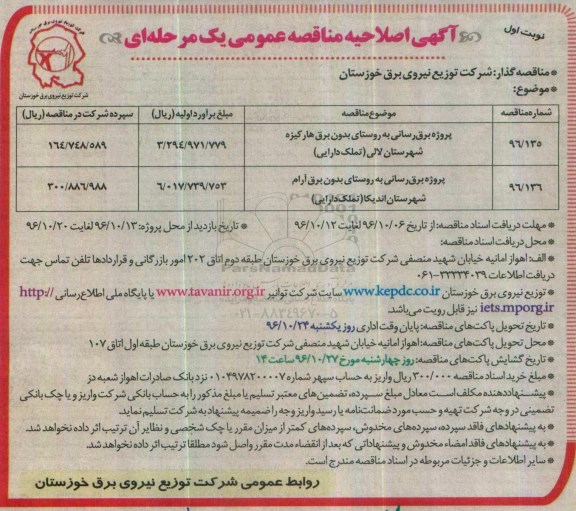 نوبت اول
آگهی اصلاحیه مناقصه عمومی یک مرحله‌ای
شرکت توزیع نیروی برق خوزستان
مناقصه گذار: شرکت توزیع نیروی برق خوزستان
موضوع:
شماره مناقصه	موضوع مناقصه	مبلغ برآورد اولیه (ریال)	سپرده شرکت در مناقصه (ریال)
۹۶/۱۳۵	پروژه برق رسانی به روستای بدون برق هارکیزه شهرستان لالی (تملک دارایی)	۳/۲۹۴/۹۷۱/۷۷۹	۱۶۴/۷۴۸/۵۸۹
۹۶/۱۳۶	پروژه برق رسانی به روستای بدون برق آرام شهرستان اندیکا (تملک دارایی)	۶/۰۱۷/۷۳۹/۷۵۳	۳۰۰/۸۸۶/۹۸۸
مهلت دریافت اسناد مناقصه: از تاریخ ۹۶/۱۰/۰۶ لغایت ۹۶/۱۰/۱۲ * تاریخ بازدید از محل پروژه: ۹۶/۱۰/۱۳ لغایت ۹۶/۱۰/۲۰
* محل دریافت اسناد مناقصه:
* الف: اهواز امانیه خیابان شهید منصفی شرکت توزیع نیروی برق خوزستان طبقه دوم اتاق ۲۰۲ امور بازرگانی و قراردادها تلفن تماس جهت
دریافت اطلاعات ۳۳۳۳۴۰۳۹-۰۶۱
* توزیع نیروی برق خوزستان www.kepdc.co.ir سایت شرکت توانیر www.tavanir.org.ir یا پایگاه ملی اطلاع رسانی http://
iets.mporg.ir نیز قابل رویت می‌باشد.
* تاریخ تحویل پاکت‌های مناقصه: پایان وقت اداری روز یکشنبه ۹۶/۱۰/۲۴
* محل تحویل پاکت‌های مناقصه: اهواز امانیه خیابان شهید منصفی شرکت توزیع نیروی برق خوزستان طبقه اول اتاق ۱۰۷
* تاریخ گشایش پاکت‌های مناقصه: روز چهارشنبه مورخ ۹۶/۱۰/۲۷ ساعت ۱۴
* مبلغ خرید اسناد مناقصه ۳۰۰/۰۰۰ ریال واریز به حساب سپهر شماره ۰۱۰۴۹۷۸۲۰۰۰۰۷ نزد بانک صادرات اهواز شعبه دز
* پیشنهاد دهنده مکلف است معادل مبلغ سپرده، تضمین‌های معتبر تسلیم یا مبلغ مذکور را به حساب بانکی شرکت واریز و یا چک بانکی
تضمینی در وجه شرکت تهیه و حسب مورد ضمانت‌نامه یا رسید واریز وجه را ضمیمه پیشنهاد به شرکت تسلیم نماید.
* به پیشنهادهای فاقد سپرده، سپرده‌های مخدوش، سپرده‌های کمتر از میزان مقرر یا چک شخصی و نظایر آن ترتیب اثر داده نخواهد شد.
* به پیشنهادهای فاقد امضاء مخدوش و پیشنهاداتی که بعد از انقضاء مدت مقرر واصل شود مطلقا ترتیب اثر داده نخواهد شد.
* سایر اطلاعات و جزئیات مربوطه در اسناد مناقصه مندرج است.
روابط عمومی شرکت توزیع نیروی برق خوزستان
ParsNamadData
۰۲۱-۸۸۳۴۹۶۷۰-۵